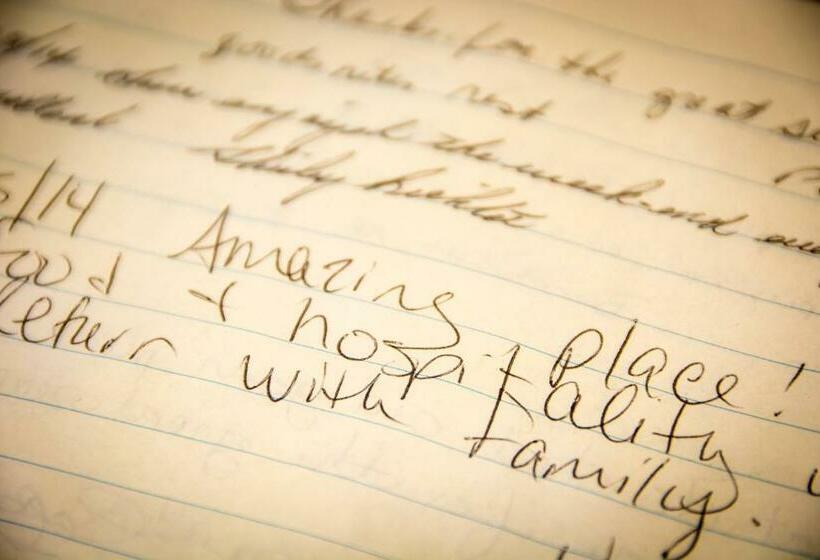 Thanks for the great
good nites rest
enjoyed the week-end
Shirly
/14 Amazing place!
food & hospitality
return with family.